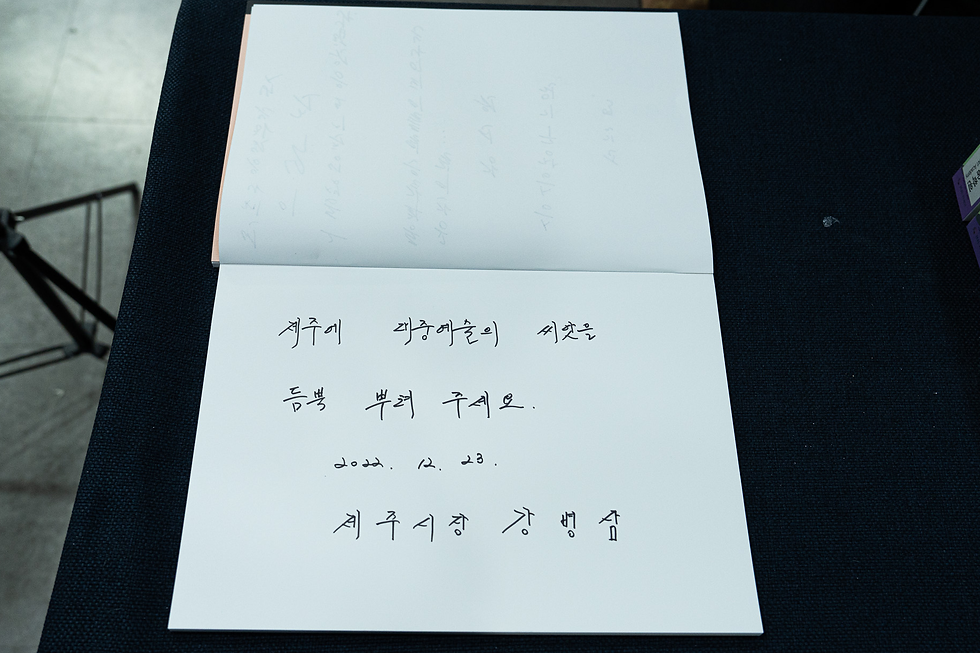 제주에 대중예술의 씨앗을
듬뿍 뿌려 주세요.
2022. 12. 23.
제주시장 강병삼